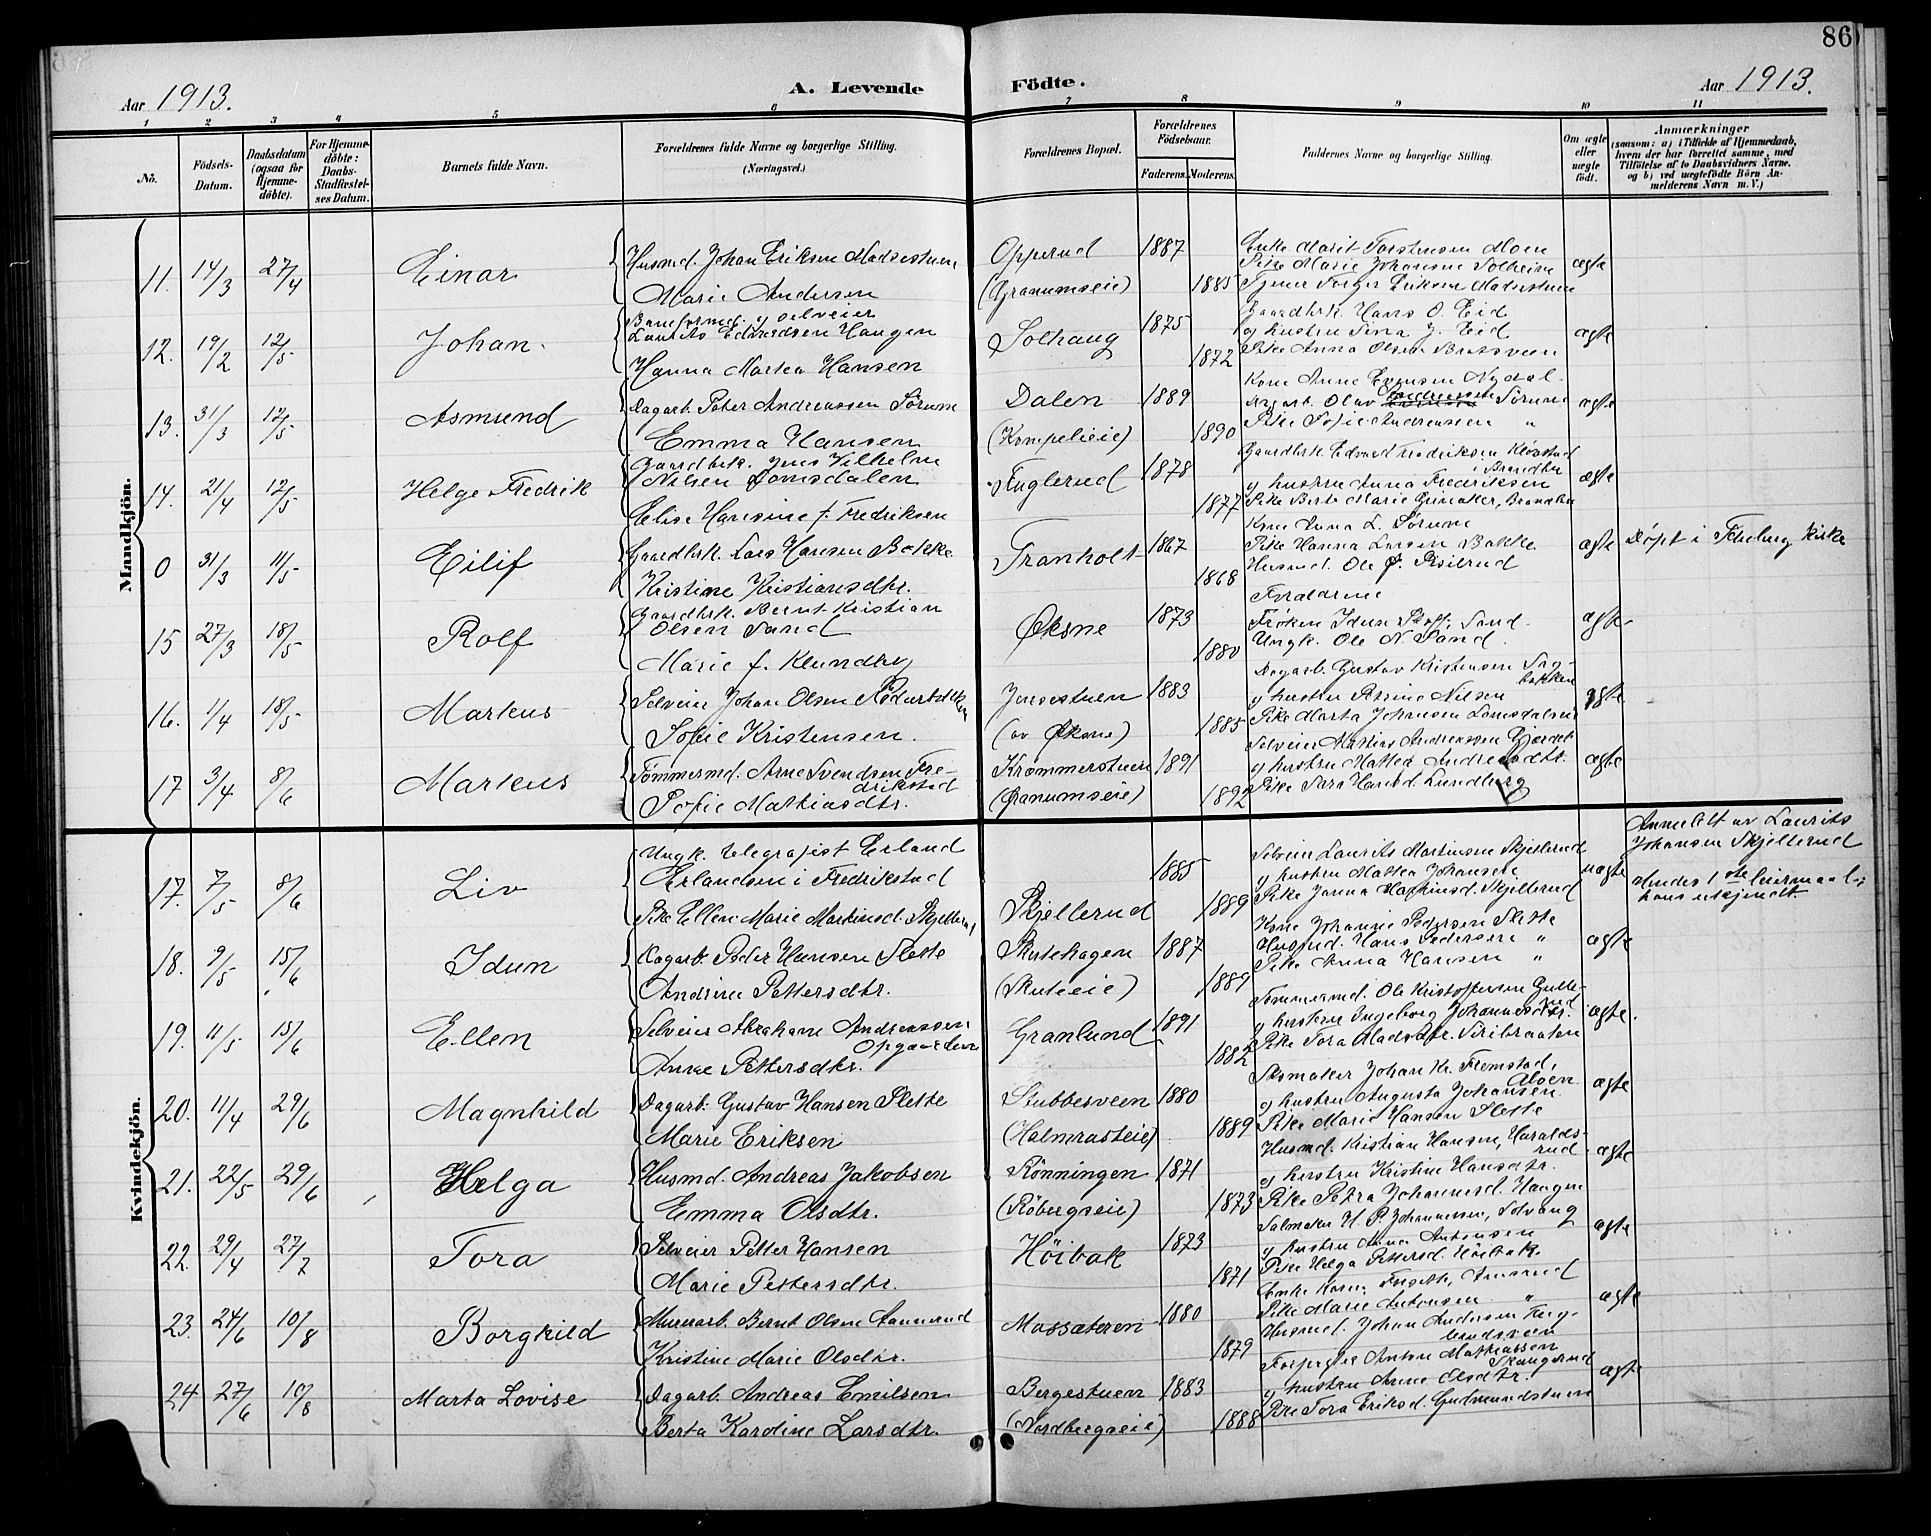 86
Aar 1913.
A. Levende Födte.
Aar 1913.
1 2 3 4 5 6 7 8 9 10 11
No.
Födsels-Datum.
Daabsdatum (ogsaa for Hjemmedöbte).
For Hjemmedöbte: Daabs-Stadfæstelses Datum.
Barnets fulde Navn.
Forældrenes fulde Navne og borgerlige Stilling. (Næringsvei.)
Forældrenes Bopæl.
Forældrenes Födselsaar.
Faderens. Moderens.
Faddernes Navne og borgerlige Stilling.
Om ægte eller uægte født.
Anmærkninger
(saasom: a) i Tilfælde af Hjemmedaab, hvem der har forrettet samme, med Tilföielse af to Daabsvidners Navne. og b) ved uægtefödte Börn Anmelderens Navn m. V.)
Mandkjön.
11. 14/3 27/4 Einar
Husmd. Johan Eriksen Madsestuen
Marie Andersen
Opperud
(Granumseie)
1887
1885
Enke Marit Torstensen Moen
Pike Marie Johansen Solheim
Tjener Torger Eriksen Madsestuen
ægte
12. 19/2 12/5 Johan.
Baneformd. og selveier
Laurits Edvardsen Haugen
Hanna Martea Hansen
Solhaug
1875
1872
Gaardbrk. Hans O. Eid
og hustru Lina J. Eid
Pike Anna Olsen
ægte
13. 31/3 12/5 Asmund
Dagarb. Peter Andreassen Sørum
Emma Hansen
Dalen
(Kompelieie)
1889
1890
Kone Anne Evensen Nydal.
Dagarb. Olav Andreassen Sørum
Pike Sofie Andreassen "
ægte
14. 21/4 12/5 Helge Fredrik
Gaardbrk. Jens Vilhelm
Nilsen Lomsdalen
Elise Hansine f. Fredriksen
Fuglerud
1878
1877
Gaardbrk. Edvard Fredriksen Kløvstad
i Brandbu
og hustru Anna Fredriksen
Pike Berte Marie Grinaker, Brandbu
ægte
0 31/3 11/5 Eilif
Gaardbrk. Lars Hansen Bakke
Kristine Kristiansdtr.
Tranholt
1867
1868
Kone Anna L. Sørum
Pike Hanna Larsen Bakke
Husmd. Ole
Forældrene
ægte
Døpt i Fluberg kirke
15 27/3 18/5 Rolf
Gaardbrk. Bernt Kristian
Olsen Sand
Marie f. Klundby
Øksne
1873
1880
Frøken Idun Sand.
Ungk. Ole N. Sand.
ægte
16. 1/4 18/5 Markus
Selveier Johan Olsen Rödnesbakken
Sofie Kristensen.
Jensestuen
(av Øksne)
1883
1885
Dagarb. Gustav Kristensen Sagbakken
og hustru Nilsen
Pike Marta Johansen Lomsdalseie
ægte
17 3/4 8/6 Markus
Tömmermd. Arne Svendsen Fredrikstad
Sofie Mathiasdtr.
Krommerstuen
(Granumseie)
1891
1892
Selveier Mathias Andreassen Gjærdet
og hustru Mathea Andreasdtr.
Pike Sara Hansd. Lundberg
ægte
Kvindekjön.
17. 7/5 8/6 Liv
Ungk. telegrafist Erland
Erlandsen i Fredrikstad
Pike Ellen Marie Martinsd. Skjellerud
Skjellerud
1885
1889
Selveier Laurits Martinsen Skjellerud
og hustru Mathea Johansen
Pike Janna Martinsd. Skjellerud
uægte
Anmeldt av Laurits
Johansen Skjellerud
Hendes 1ste leiermaal;
hans ukjendt.
18. 9/5 15/6 Idun
Dagarb. Peder Hansen Slette
Andrine Pettersdtr.
Skutehagen
(Skuteeie)
1887
1889
Kone Johanne Pedersen Slette
Husmd. Hans Pedersen "
Pike Anna Hansen "
ægte
19. 11/5 15/6 Ellen
Selveier Abraham Andreassen
Opgaarden
Anne Pettersdtr.
Granlund
1891
1882
Tømmermd. Ole Kristoffersen
og hustru Ingeborg Johannesdtr.
Pike Tora Madsdtr. Siribraaten
ægte.
20. 11/4 29/6 Magnhild
Dagarb. Gustav Hansen Slette
Marie Eriksen
Stubbesveen
(Halmrasteie)
1880
1889
Skomaker Johan Kr. Fremstad,
og hustru Augusta Johansen Moen
Pike Marie Hansen Slette
ægte
21. 22/5 29/6 Helga
Husmd. Andreas Jakobsen
Emma Olsdtr.
Rönningen
(Röbergseie)
1871
1873
Husmd. Kristian Hansen, Haraldsrud.
og hustru Kristine Hansdtr.
Pike Petra Johannesd. Haugen
ægte
22. 29/4 27/7 Tora
Selveier Petter Hansen
Marie Pettersdtr.
Höibak
1873
1871
Salmaker H. P. Johannessen, Solvang
og hustru Anna Antonsen
Pike Helga Pettersd. Höibak.
ægte
23. 24/6 10/8 Borghild
Murerarb. Bernt Olsen
Kristine Marie Olsdtr.
Mossæteren
1880
1879
Enke Karen
Pike Marie Antonsen "
Husmd. Johan Andersen
ægte
24 27/6 10/8 Marta Lovise
Dagarb. Andreas Emilsen
Berta Karoline Larsdtr.
Bergestuen
(Nordbergseie)
1883
1888
Forpagter Anton Mathiassen
Skaugerud
og hustru Anne Olsdtr.
Pike Tora Eriksd. Gudmundstuen
ægte